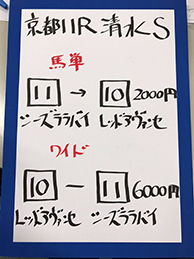 京都11R 清水S
馬単
11 → 10 2000円
シーズララバイ レッドアヴァンセ
ワイド
10 — 11 6000円
レッドアヴァンセ シーズララバイ